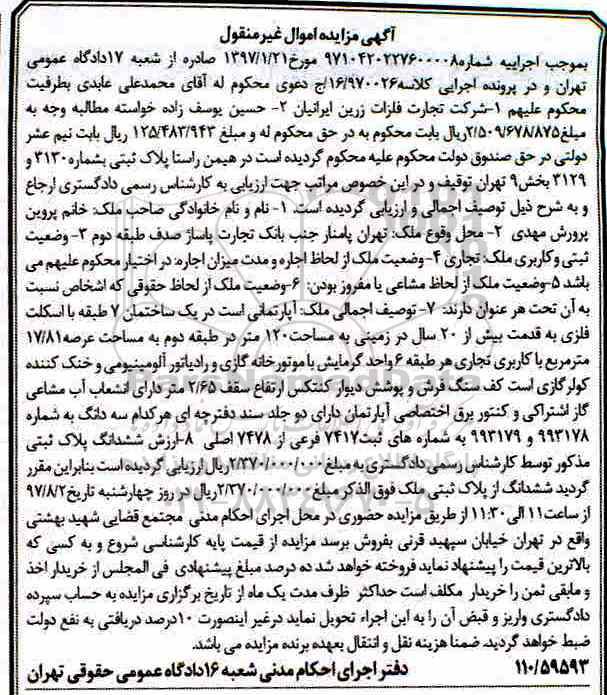 آگهی مزایده اموال غیر منقول
بموجب اجراییه شماره ۹۷۱۰۴۲۰۲۲۷۶۰۰۰۰۸ مورخ ۱۳۹۷/۱/۲۱ صادره از شعبه ۱۷ دادگاه عمومی
تهران و در پرونده اجرایی کلاسه ۱۶/۹۷۰۰۲۶/ج دعوی محکوم له آقای محمدعلی عابدی بطرفیت
محکوم علیهم ۱-شرکت تجارت فلزات زرین ایرانیان ۲- حسین یوسف زاده خواسته مطالبه وجه به
مبلغ ۲/۵۰۹/۶۷۸/۸۷۵ریال بابت محکوم به در حق محکوم له و مبلغ ۱۲۵/۴۸۳/۹۴۳ ریال بابت نیم عشر
دولتی در حق صندوق دولت محکوم علیه محکوم گردیده است در همین راستا پلاک ثبتی بشماره ۳۱۳۰ و
۳۱۲۹ بخش ۹ تهران توقیف و در این خصوص مراتب جهت ارزیابی به کارشناس رسمی دادگستری ارجاع
و به شرح ذیل توصیف اجمالی و ارزیابی گردیده است. ۱- نام و نام خانوادگی صاحب ملک: خانم پروین
پرورش مهدی ۲- محل وقوع ملک: تهران پامنار جنب بانک تجارت پاساژ صدف طبقه دوم ۳- وضعیت
ثبتی وکاربری ملک: تجاری ۴- وضعیت ملک از لحاظ اجاره و مدت میزان اجاره: در اختیار محکوم علیهم می
باشد ۵-وضعیت ملک از لحاظ مشاعی یا مفروز بودن: ۶-وضعیت ملک از لحاظ حقوقی که اشخاص نسبت
به آن تحت هر عنوان دارند: ۷- توصیف اجمالی ملک: آپارتمانی است در یک ساختمان ۷ طبقه با اسکلت
فلزی به قدمت بیش از ۲۰ سال در زمینی به مساحت ۱۲۰ متر در طبقه دوم به مساحت عرصه ۱۷/۸۱
مترمربع با کاربری تجاری هر طبقه ۶ واحد گرمایش با موتورخانه گازی و رادیاتور آلومینیومی و خنک کننده
کولر گازی است کف سنگ فرش و پوشش دیوار کنتکس ارتفاع سقف ۲/۶۵ متر دارای انشعاب آب مشاعی
گاز اشتراکی و کنتور برق اختصاصی آپارتمان دارای دو جلد سند دفترچه ای هرکدام سه دانگ به شماره
۹۹۳۱۷۸ و ۹۹۳۱۷۹ به شماره های ثبت ۷۴۱۷ فرعی از ۷۴۷۸ اصلی ۸-ارزش ششدانگ پلاک ثبتی
مذکور توسط کارشناس رسمی دادگستری به مبلغ ۲/۳۷۰/۰۰۰/۰۰۰ریال ارزیابی گردیده است بنابراین مقرر
گردید ششدانگ از پلاک ثبتی ملک فوق الذکر مبلغ ۲/۳۷۰/۰۰۰/۰۰۰ریال در روز چهارشنبه تاریخ ۹۷/۸/۲
از ساعت ۱۱ الی ۱۱:۳۰ از طریق مزایده حضوری در محل اجرای احکام مدنی مجتمع قضایی شهید بهشتی
واقع در تهران خیابان سپهبد قرنی بفروش برسد مزایده از قیمت پایه کارشناسی شروع و به کسی که
بالاترین قیمت را پیشنهاد نماید فروخته خواهد شد ده درصد مبلغ پیشنهادی فی المجلس از خریدار اخذ
و مابقی ثمن را خریدار مکلف است حداکثر ظرف مدت یک ماه از تاریخ برگزاری مزایده به حساب سپرده
دادگستری واریز و قبض آن را به این اجراء تحویل نماید درغیر اینصورت ۱۰درصد دریافتی به نفع دولت
ضبط خواهد گردید. ضمنا هزینه نقل و انتقال بعهده برنده مزایده می باشد.
۱۱۰/۵۹۵۹۳ دفتر اجرای احکام مدنی شعبه ۱۶ دادگاه عمومی حقوقی تهران